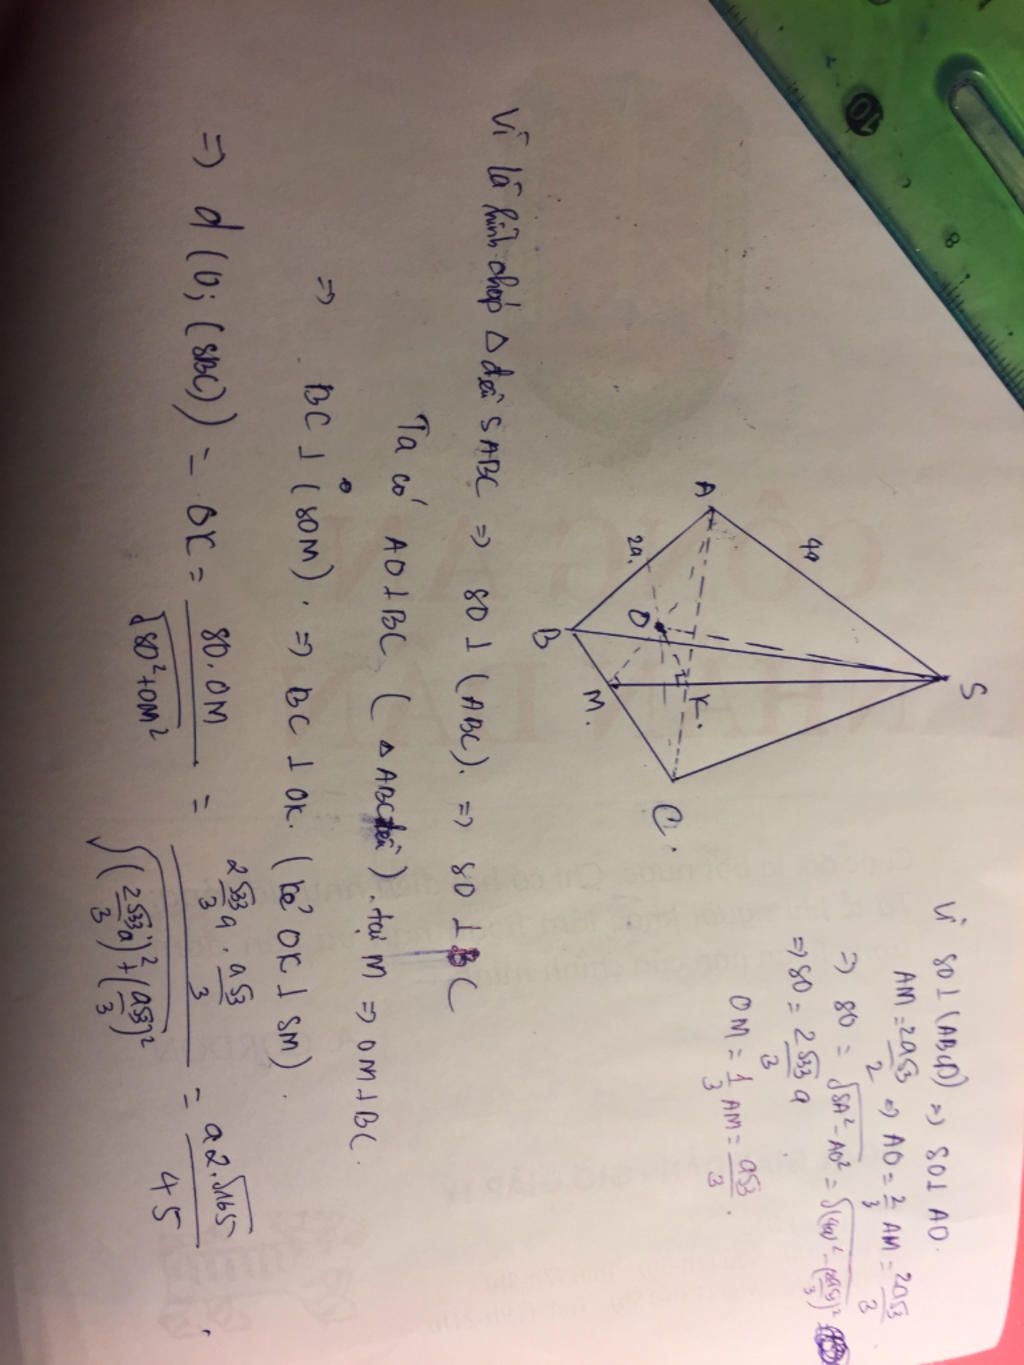 S
A
B
C.
M.
O
K.
4a
2a
Vì SO⊥(ABCD) ⇒ SO⊥AO.
AM = 2a√3/2 ⇒ AO = 2/3 AM = 2a√3/3
⇒ SO = √(SA² - AO²) = √((4a)² - (2a√3/3)²)
⇒ SO = 2√33/3 a
OM = 1/3 AM = a√3/3.
Vì là hình chóp Δ đều SABC ⇒ SO⊥(ABC). ⇒ SO⊥BC
Ta có AO⊥BC (ΔABC đều). tại M ⇒ OM⊥BC.
⇒ BC⊥(SOM). ⇒ BC⊥OK. (kẻ OK⊥SM).
⇒ d(O;(SBC)) = OK = SO.OM/√(SO²+OM²) = (2√33/3 a . a√3/3)/√((2√33/3 a)²+(a√3/3)²) = a2.√165/45
10
8
CÔNG AN
NHÂN DÂN